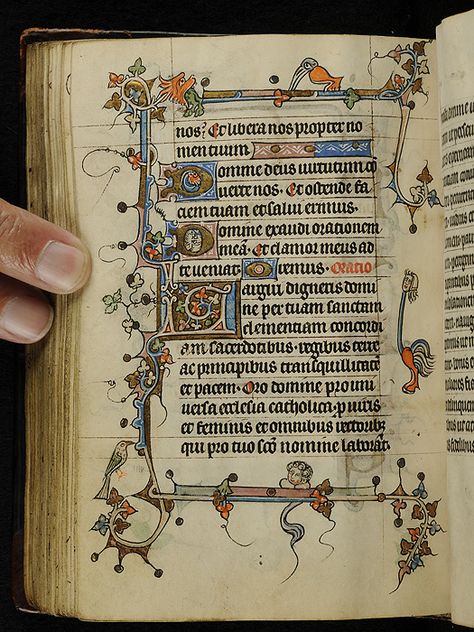 nos? Et libera nos propter no
men tuum
Domine deus uirtutum cō
uerte nos. Et ostende fa
ciem tuam et salui erimus.
Domine exaudi orationem
meā. Et clamor meus ad
te ueniat. Oremus. Oratio
digneris domi
ne per tuam sanctam
clementiam concordi
am sacerdotibus. regibus terre
ac principibus tranquillitatē
et pacem. Oro domine pro uni
uersa ecclesia catholica. p uiris
et feminis et omnibus rectoribꝫ
qui pro tuo scō nomine laborāt.